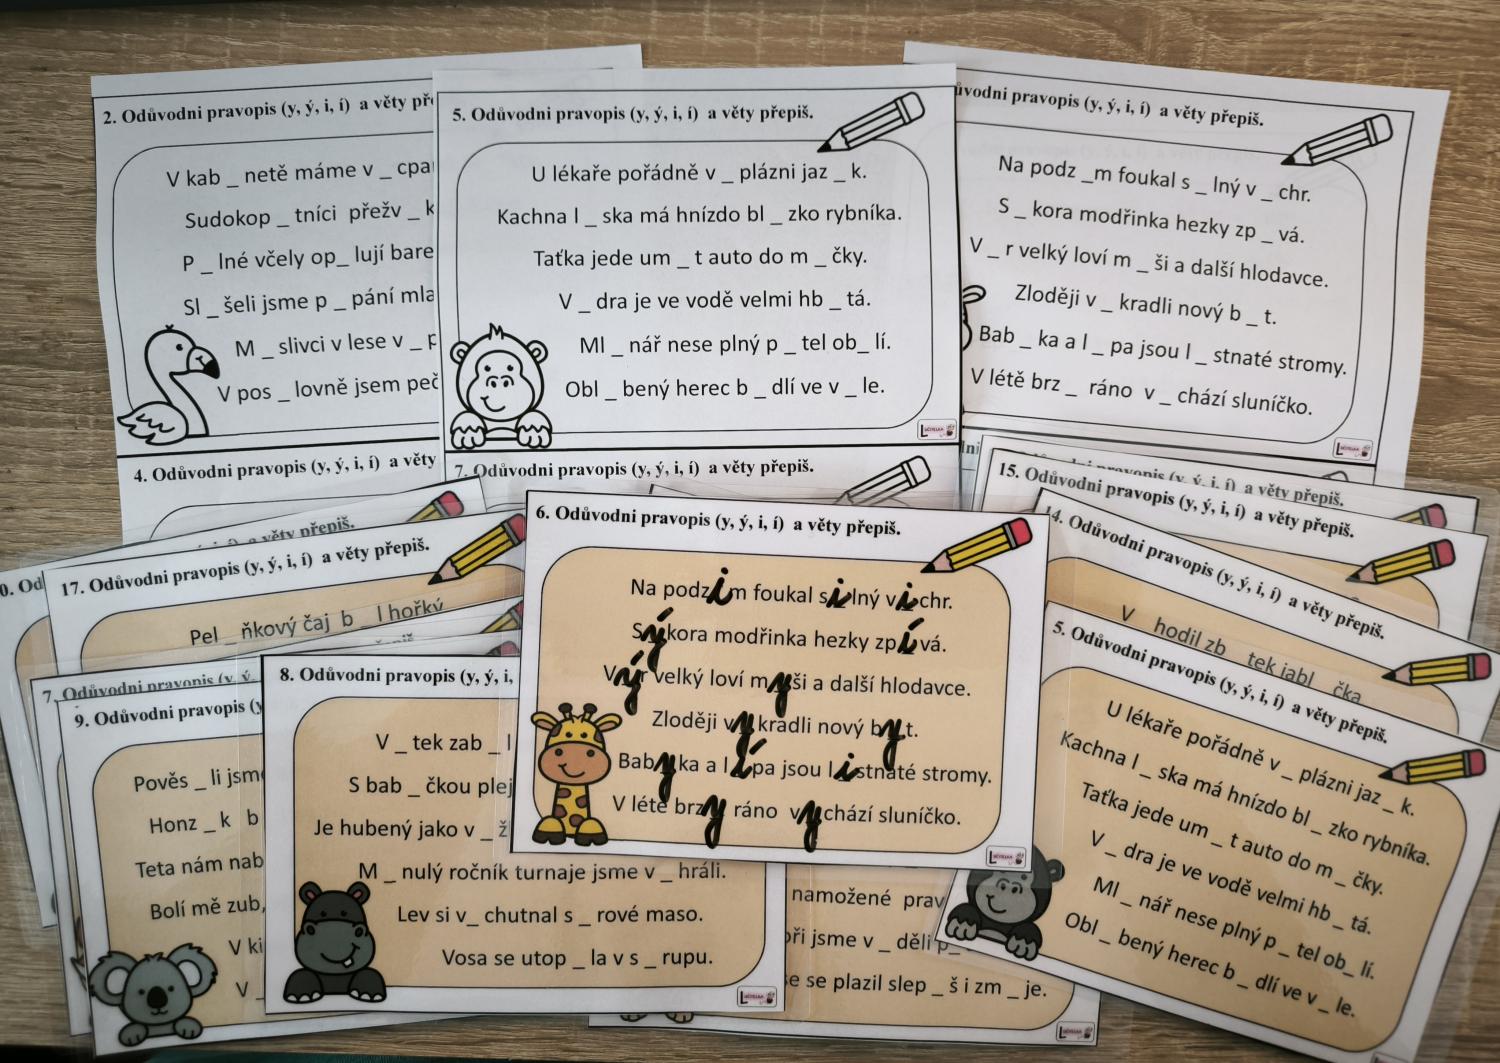 2. Odůvodni pravopis (y, ý, i, í) a věty
V kab _ netě máme v _
Sudokop _ tníci přežv _
P _ lné včely op_ lují
Sl _ šeli jsme p _ pání
M _ slivci v lese v _
V pos _ lovně jsem
4. Odůvodni pravopis (y, ý, i, í) a věty
5. Odůvodni pravopis (y, ý, i, í) a věty přepiš.
U lékaře pořádně v _ plázni jaz _ k.
Kachna l _ ska má hnízdo bl _ zko rybníka.
Taťka jede um _ t auto do m _ čky.
V _ dra je ve vodě velmi hb _ tá.
Ml _ nář nese plný p _ tel ob_ lí.
Obl _ bený herec b _ dlí ve v _ le.
7. Odůvodni pravopis (y, ý, i, í) a věty přepiš.
pravopis (y, ý, i, í) a věty přepiš.
Na podz _m foukal s _ lný v _ chr.
S _ kora modřinka hezky zp _ vá.
V _ r velký loví m _ ši a další hlodavce.
Zloději v _ kradli nový b _ t.
Bab _ ka a l _ pa jsou l _ stnaté stromy.
V létě brz _ ráno v _ chází sluníčko.
a věty přepiš.
17. Odůvodni pravopis (y, ý, i, í) a věty přepiš.
Pel _ ňkový čaj b _ l hořký
7. Odůvodni pravopis (y, ý
9. Odůvodni pravopis
Pověs _ li jsme
Honz _ k b
Teta nám
Bolí mě zub,
V
V _
8. Odůvodni pravopis (y, ý, i,
V _ tek zab _
S bab _ čkou
Je hubený jako v _
M _ nulý ročník turnaje jsme v _ hráli.
Lev si v_ chutnal s _ rové maso.
Vosa se utop _ la v s _ rupu.
6. Odůvodni pravopis (y, ý, i, í) a věty přepiš.
Na podzim foukal silný vichr.
Sýkora modřinka hezky zpívá.
Výr velký loví myši a další hlodavce.
Zloději vykradli nový byt.
Babyka a lípa jsou listnaté stromy.
V létě brzy ráno vychází sluníčko.
namožené
jsme v _ děli
se plazil slep _ š i zm _ je.
a věty přepiš.
15. Odůvodni pravopis (y, ý, i, í) a věty přepiš.
14. Odůvodni pravopis (y, ý, i, í) a věty přepiš.
V _ hodil zb _ tek jabl _ čka
5. Odůvodni pravopis (y, ý, i, í) a věty přepiš.
U lékaře pořádně v _ plázni jaz _ k.
Kachna l _ ska má hnízdo bl _ zko rybníka.
Taťka jede um _ t auto do m _ čky.
V _ dra je ve vodě velmi hb _ tá.
Ml _ nář nese plný p _ tel ob_ lí.
Obl _ bený herec b _ dlí ve v _ le.